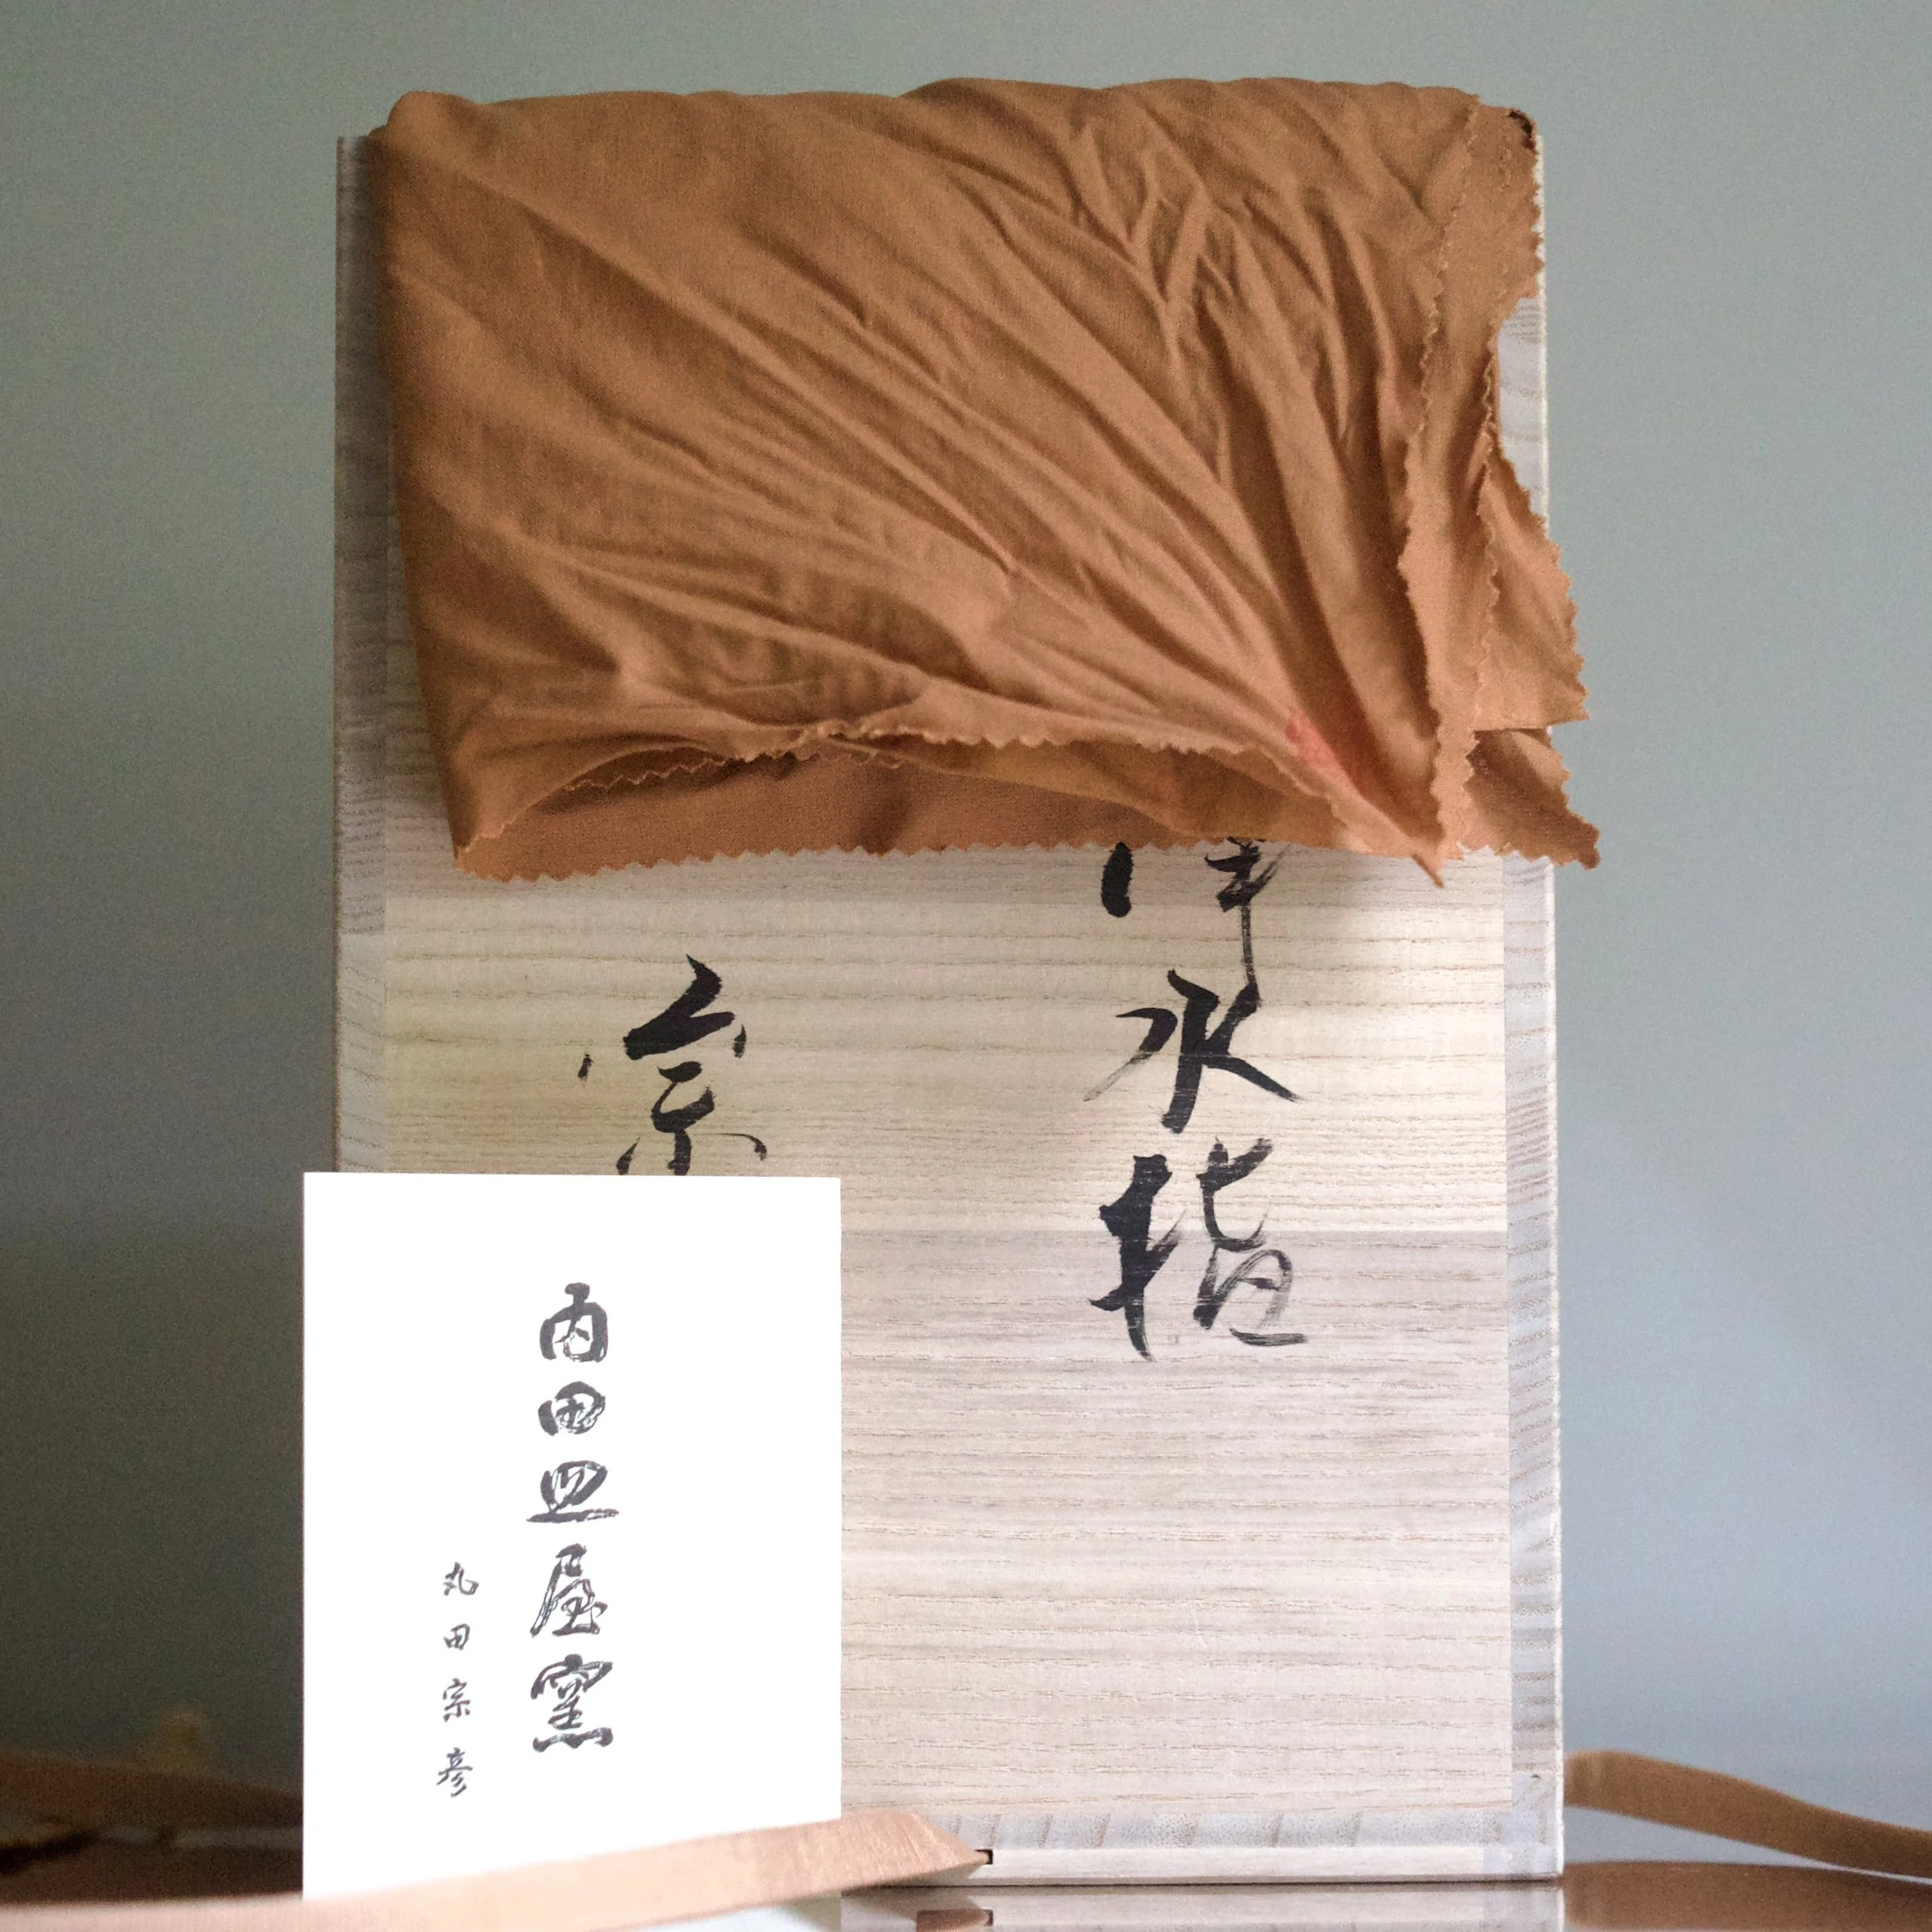 水指
宗
内田皿屋窯
丸田宗彦